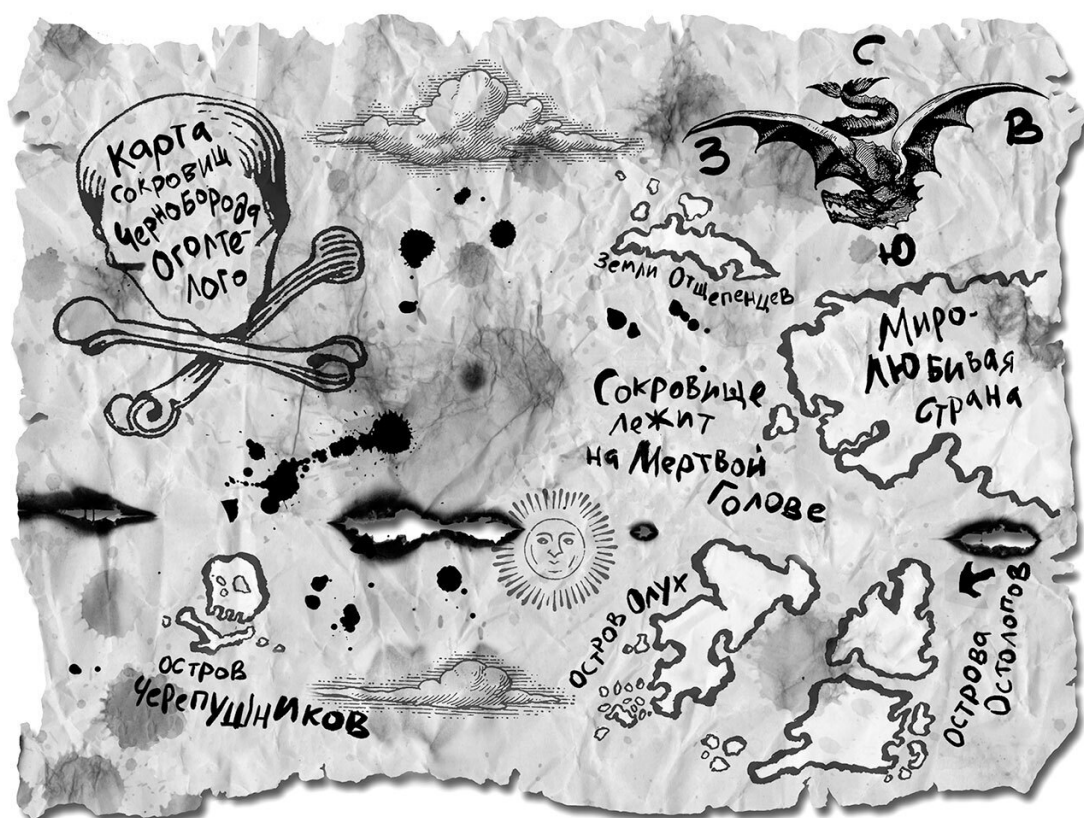 Карта
сокровищ
Черноборода
Оголте-
лого
С
З
В
Ю
Земли Отщепенцев
Миро-
любивая
страна
Сокровище
лежит
на Мертвой
Голове
остров
Черепушников
остров Олух
острова
Остолопов